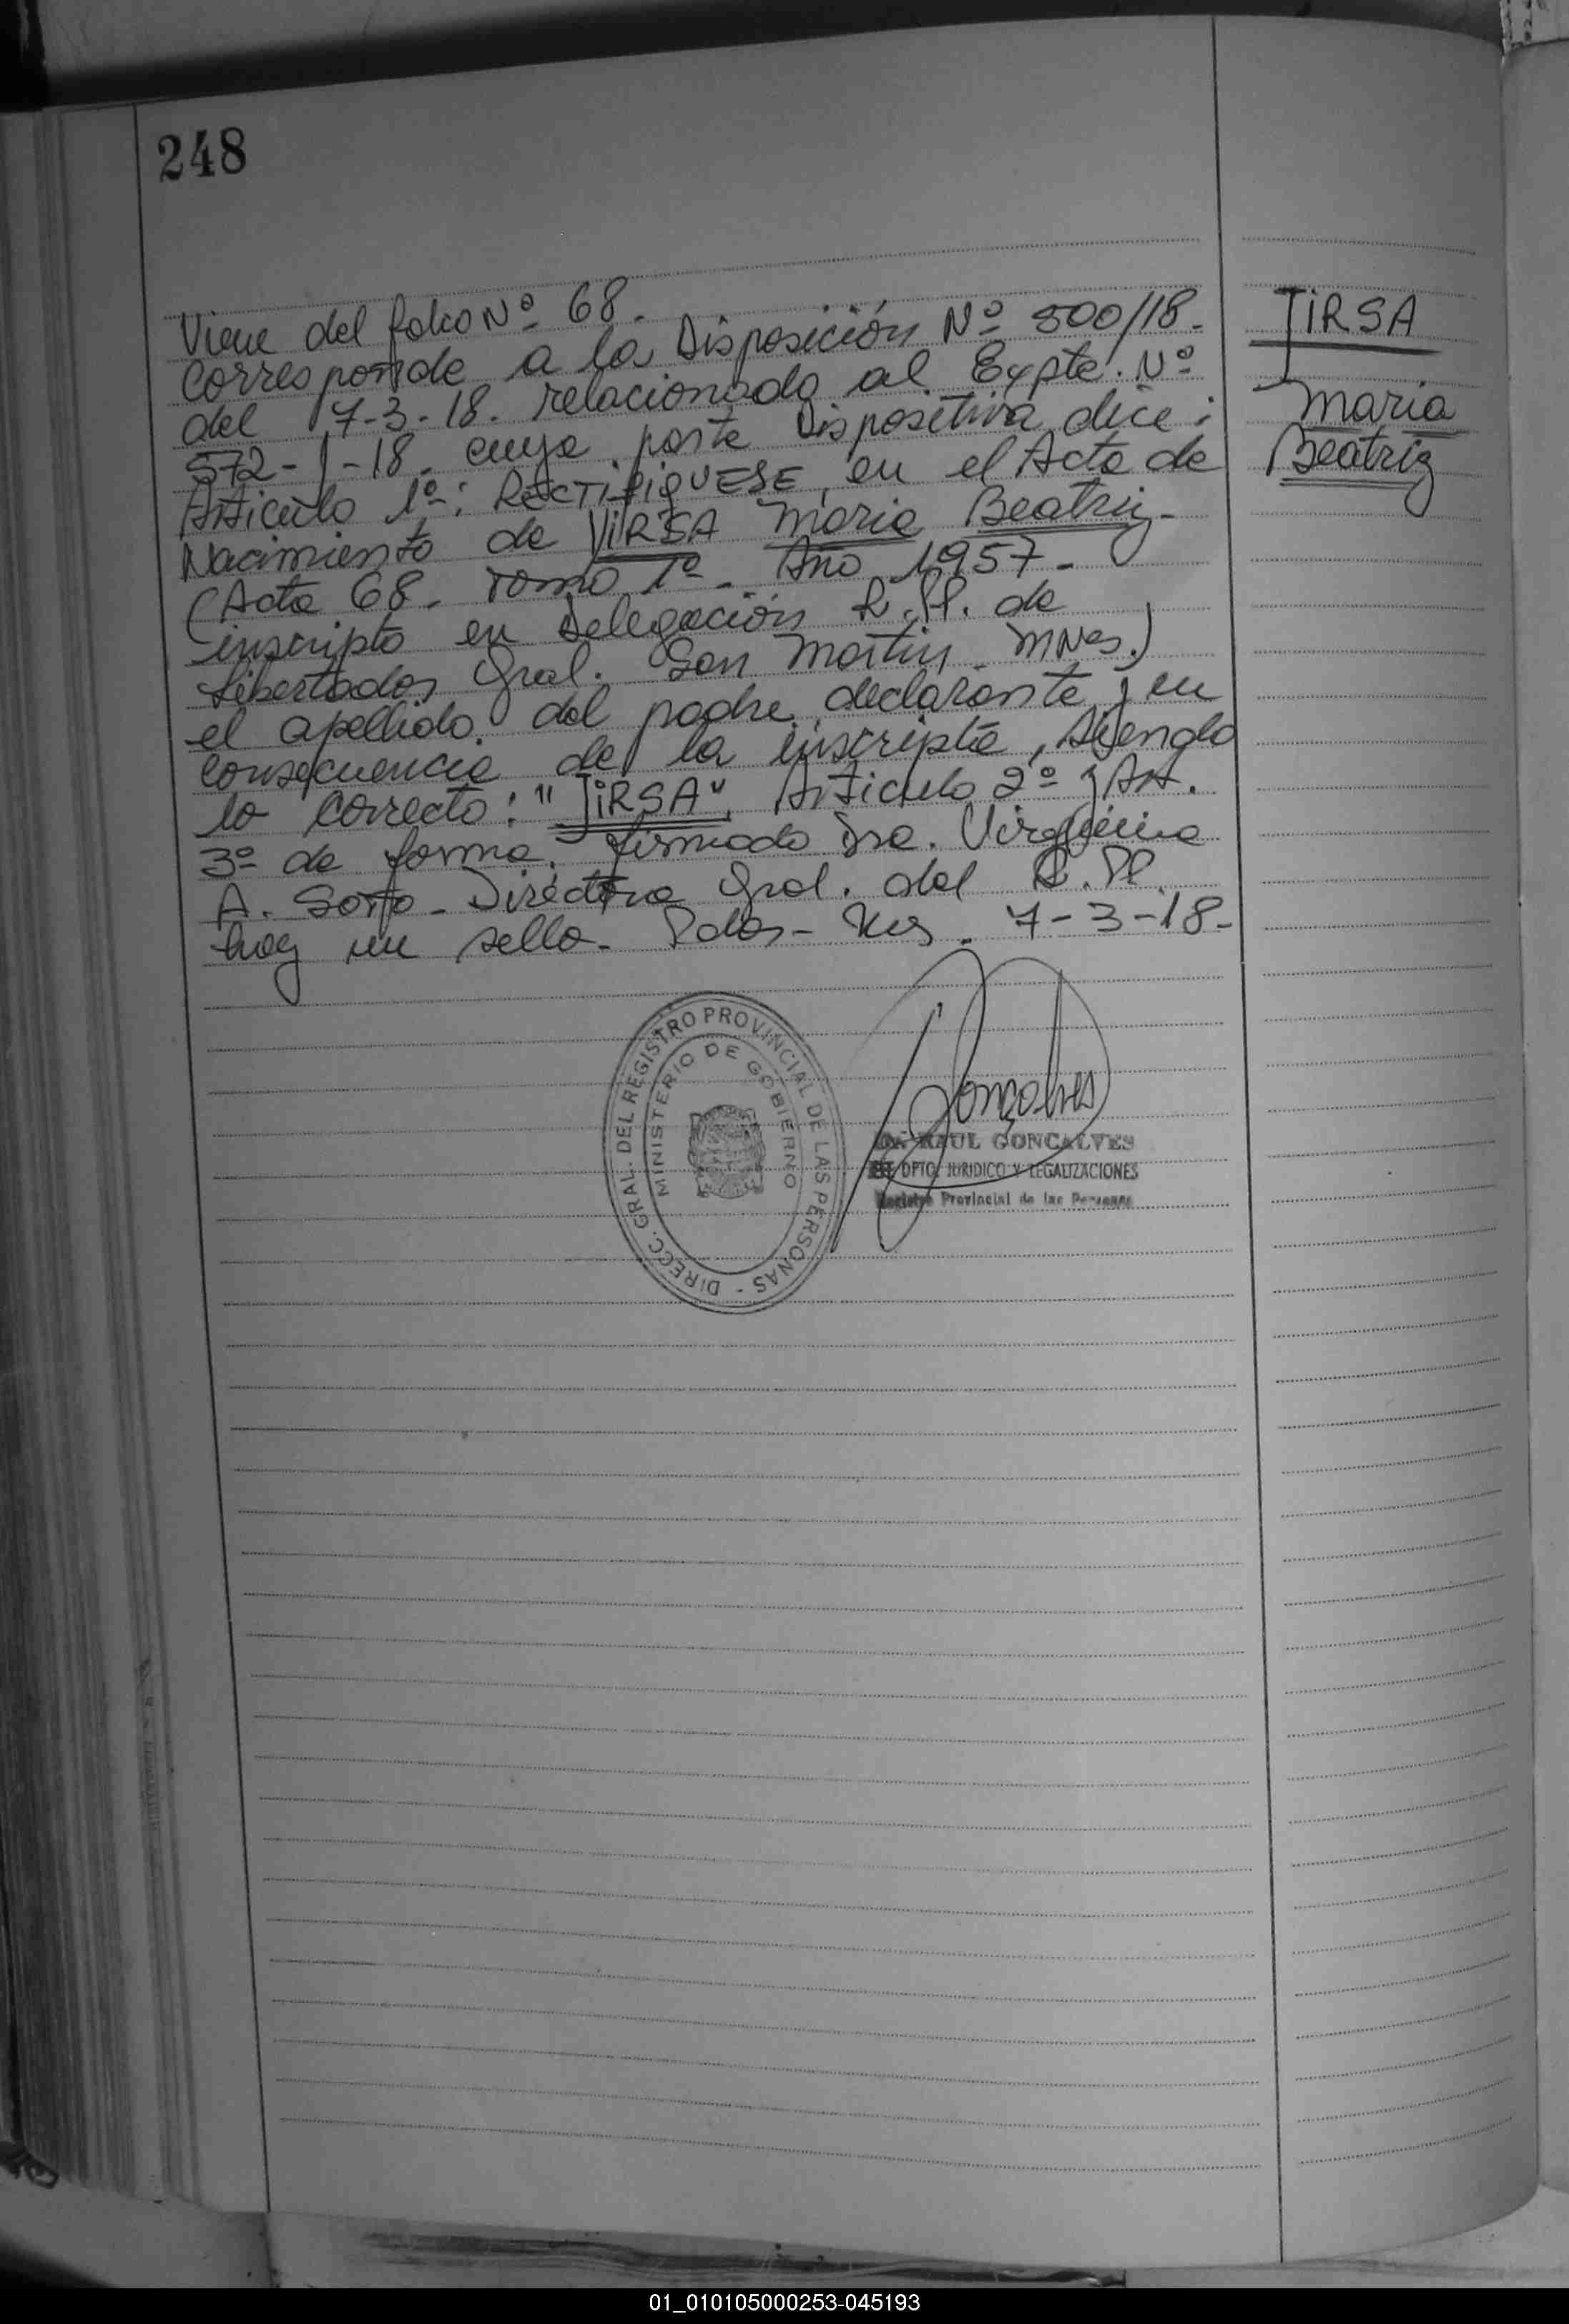 248
Viene del folio Nº 68.
Corresponde a la Disposición Nº 500/18.
del 7-3-18. relacionado al Expte. Nº
572-J-18. cuya parte Dispositiva dice:
Articulo 1º: RECTIFIQUESE, en el Acta de
Nacimiento de VIRSA Maria Beatriz-
(Acta 68. Tomo 1º. Año 1957.
inscripta en Delegación R.P. de
Libertador Gral. San Martin. MNes.)
el apellido del padre declarante y en
consecuencia de la inscripta, siendo
lo correcto: "JIRSA". Articulo 2º y Art.
3º de forma. firmado Dra. Virginia
A. Sotto. Directora Gral. del R.P.
hay un sello. Pdas- Mes. 7-3-18-
JIRSA
Maria
Beatriz
DIRECC. GRAL. DEL REGISTRO PROVINCIAL DE LAS PERSONAS -
MINISTERIO DE GOBIERNO
Gonçalves
RAUL GONCALVES
DPTO. JURIDICO Y LEGALIZACIONES
Registro Provincial de las Personas
01_010105000253-045193